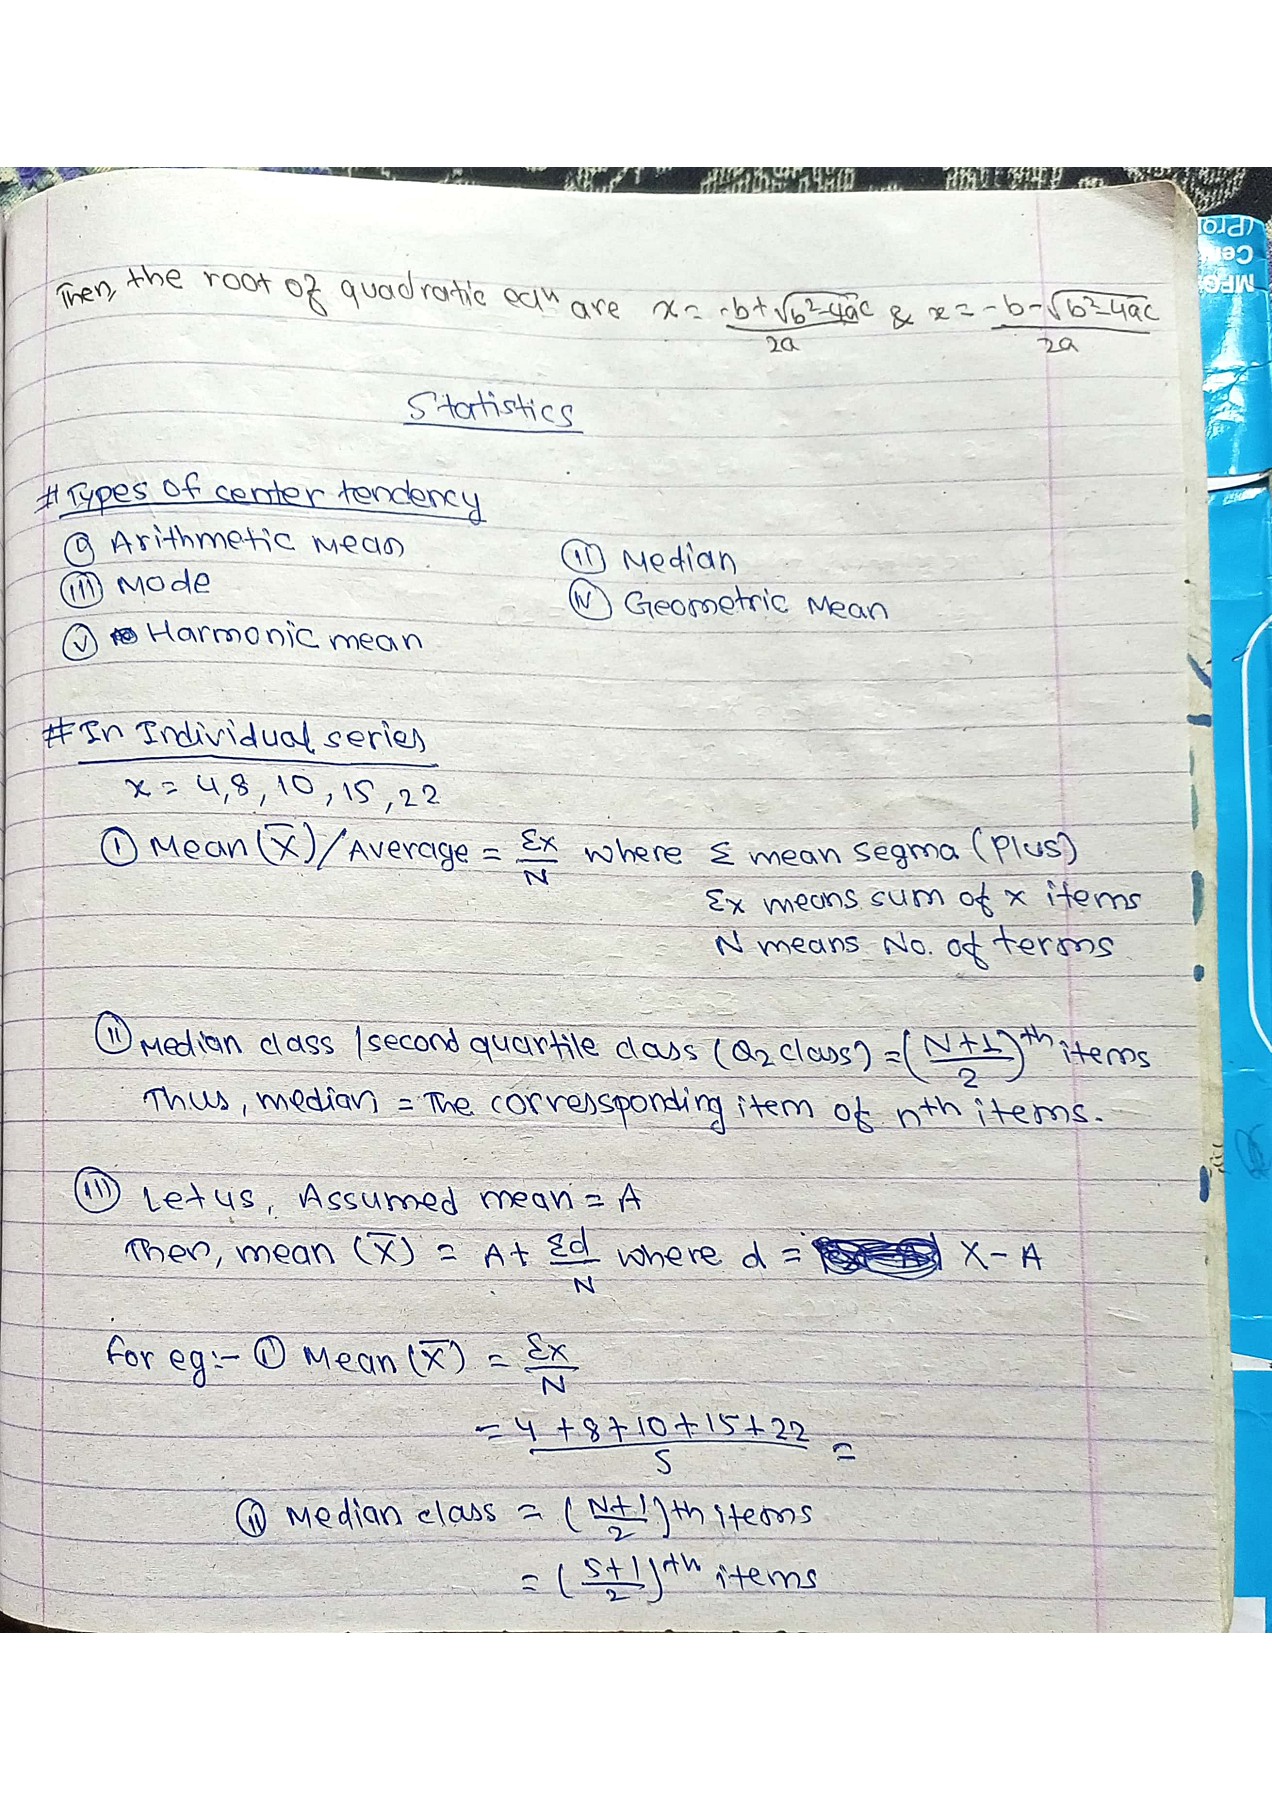 Then, the root of quadratic eqn are x = -b+√b²-4ac/2a & x = -b-√b²-4ac/2a
Statistics
# Types of center tendency
(i) Arithmetic Mean (ii) Median
(iii) Mode (iv) Geometric Mean
(v) Harmonic mean
# In Individual series
x = 4,8,10,15,22
(i) Mean (x̄)/Average = Σx/N where Σ mean segma (plus)
Σx means sum of x items
N means No. of terms
(ii) Median class / second quartile class (Q2 class) = (N+1/2)th items
Thus, median = The corressponding item of nth items.
(iii) Let us, Assumed mean = A
Then, mean (x̄) = A+ Σd/N where d = X-A
for eg:- (i) Mean (x̄) = Σx/N
= 4+8+10+15+22/5 =
(ii) Median class = (N+1/2)th items
= (5+1/2)th items
(Pro
Cem
MFG